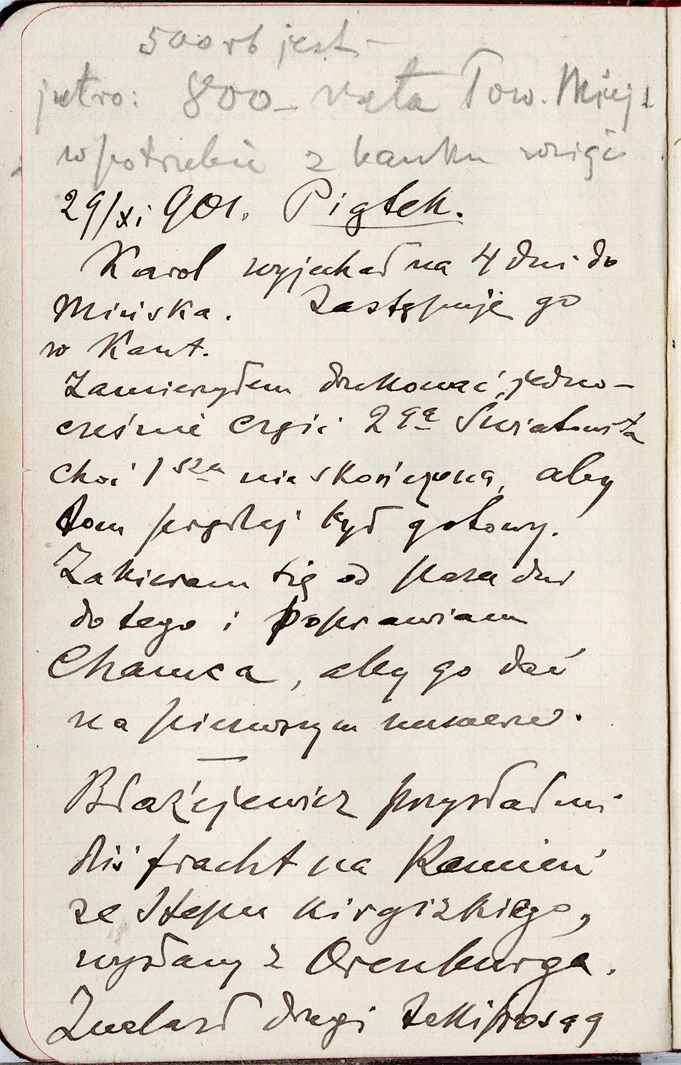 500 rb jest –
jutro: 800 – rata Tow. Miejs
w potrzebie z banku wziąć
29/XI 901. Piątek.
Karol wyjechał na 4 dni do
Mińska. Zastępuję go
w Kant.
Zamierzyłem drukować jedno-
cześnie część 2gą Światowita
choć 1sza nieskończona, aby
tom prędzej był gotowy.
Zabieram się od paru dni
do tego i poprawiam
Chamca, aby go dać
na pierwszym numerze.
Błażejewicz przysłał mi
dziś fracht na Kamień
ze Stepu Kirgizkiego,
wysłany z Orenburga.
Znalazł drugi taki posąg